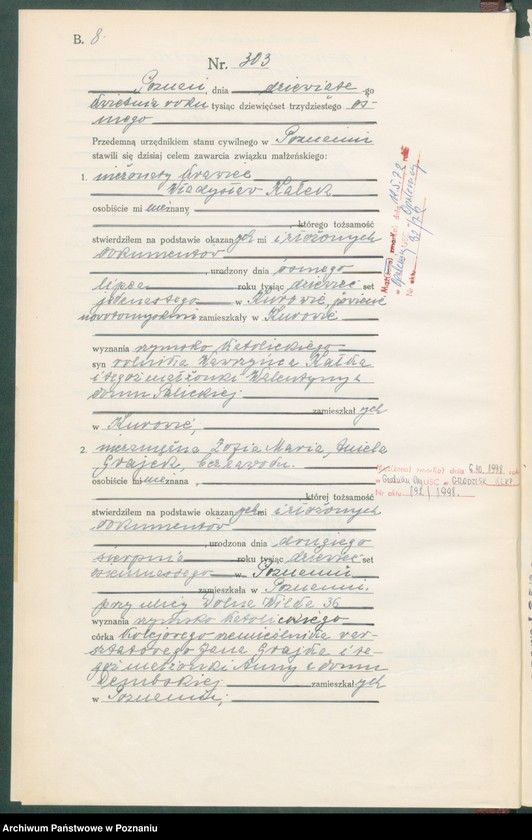 B. 8.
Nr. 303
Poznań, dnia dziewiąte-go
kwietnia roku tysiąc dziewięćset trzydziestego ós-
mego
Przedemną urzędnikiem stanu cywilnego w Poznaniu
stawili się dzisiaj celem zawarcia związku małżeńskiego:
1. nieżonaty krawiec
Władysław Kałek
osobiście mi nieznany
którego tożsamość
stwierdziłem na podstawie okazanych mi i złożonych
dokumentów
, urodzony dnia ósmego
lipca roku tysiąc dziewięć set
jedenastego w Kurowie, powiecie
nowotomyskim zamieszkały w Kurowie
wyznania rzymsko katolickiego
syn rolnika Wawrzyńca Kałka
i tegoż małżonki Walentyny z
domu
zamieszkałych
w Kurowie,
2. niezamężna Zofia Maria, Aniela
Grajek, bez zawodu.
osobiście mi nieznana ,
, której tożsamość
stwierdziłem na podstawie okazanych mi i złożonych
dokumentów
, urodzona dnia drugiego
sierpnia roku tysiąc dziewięć set
osiemnastego w Poznaniu
zamieszkała w Poznaniu,
przy ulicy Dolna Wilda 36
wyznania rzymsko katolickiego
córka kolejowego rzemieślnika war-
sztatowego Jana Grajka i te-
goż małżonki Anny z domu
zamieszkałych
w Poznaniu;
zmarł(a) dnia
Nr aktu
zmarł(a) dnia 6.10.1998 rok
w USC w GRODZISK WLKP.
Nr aktu 192/1998.
Archiwum Państwowe w Poznaniu